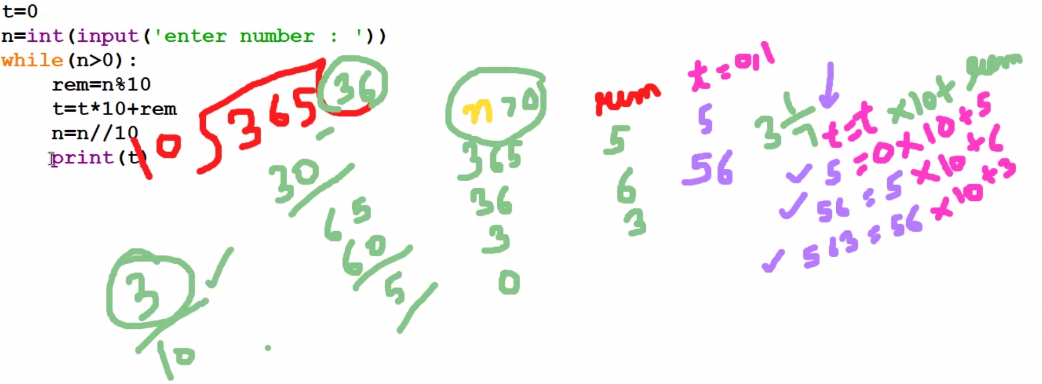 t=0
n=int(input('enter number : '))
while(n>0):
    rem=n%10
    t=t*10+rem
    n=n//10
    print(t)
10 365 36
30
65
60
5
3
10
n>0
365
36
3
0
rem
5
6
3
t=0
5
56
t=t×10+rem
5=0×10+5
56=5×10+6
563=56×10+3